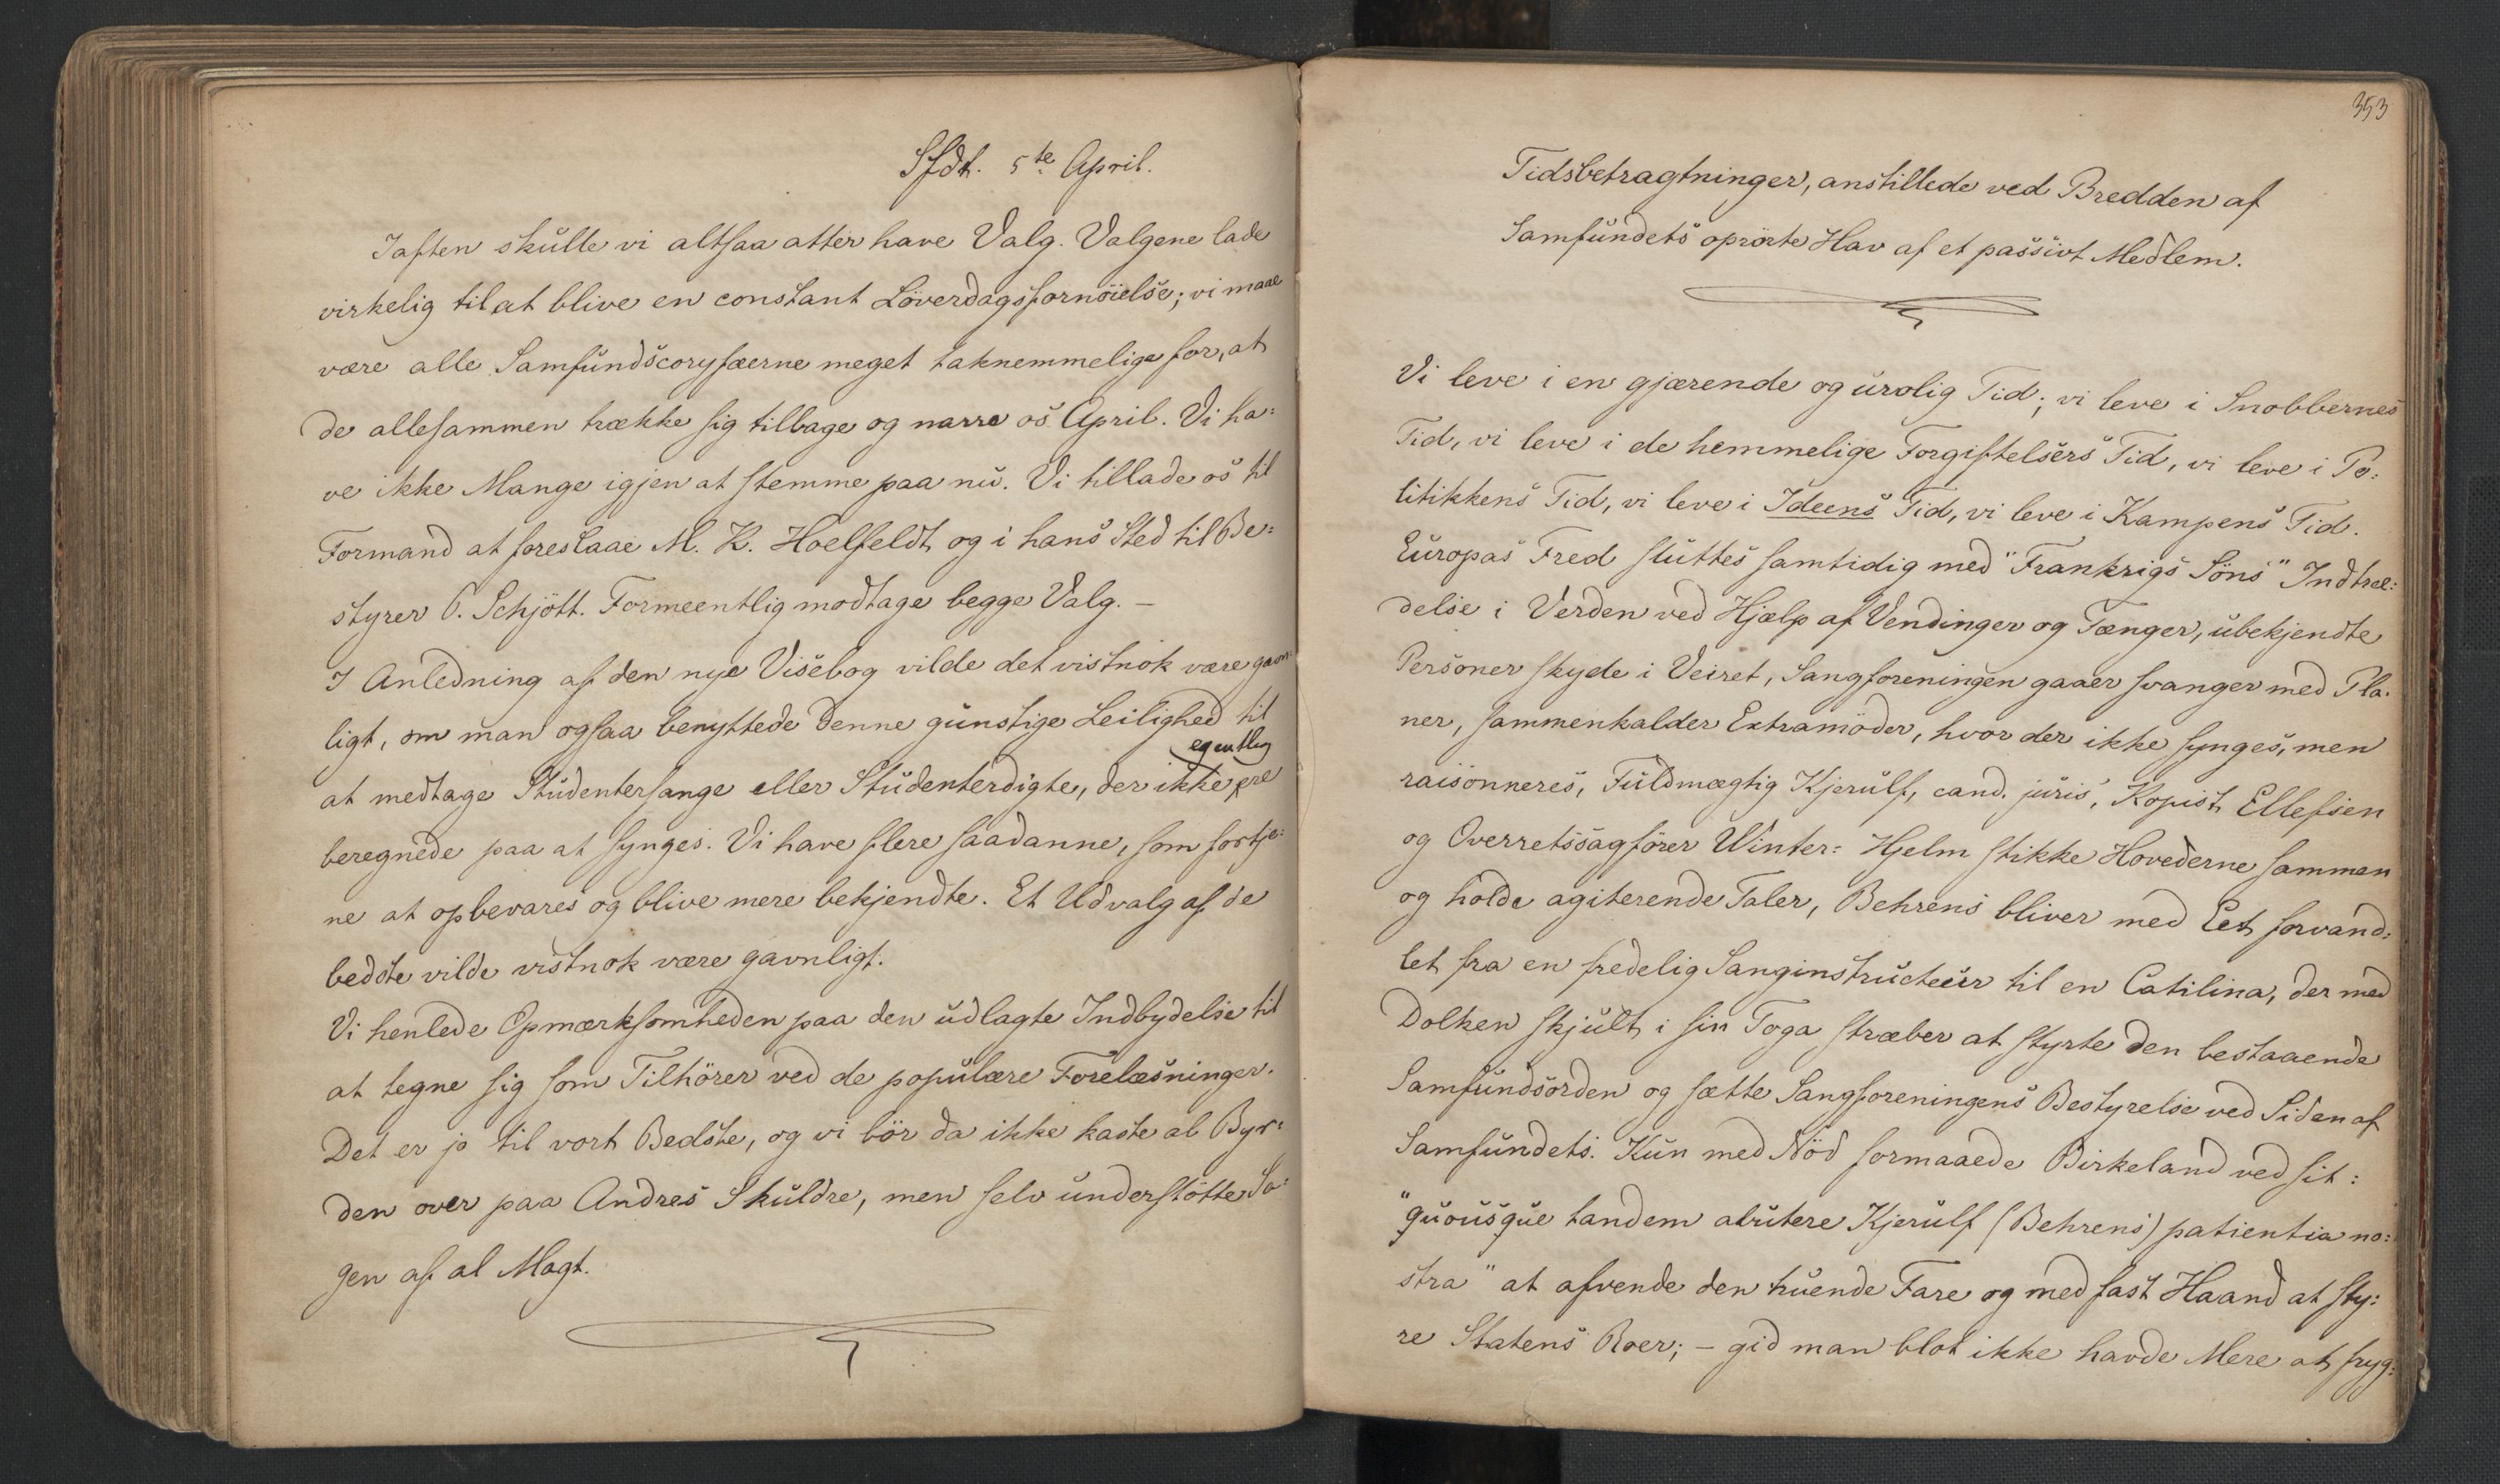 Sfdt. 5te April.
Iaften skulle vi altsaa atter have Valg. Valgene lade
virkelig til at blive en constant Löverdagsfornöielse; vi maae
være alle Samfundscoryfæerne meget taknemmelige for, at
de allesammen trække sig tilbage og narre os April. Vi ha=
ve ikke Mange igjen at stemme paa nu. Vi tillade os til
Formand at foreslaae M. K. Hoelfeldt og i hans Sted til Be=
styrer O. Schjött. Formeentlig modtage begge Valg. –
I Anledning af den nye Visebog vilde det vistnok være gavn=
ligt, om man ogsaa benyttede denne gunstige Leilighed til
egentlig
at medtage Studentersange eller Studenterdigte, der ikke ere
beregnede paa at synges. Vi have flere saadanne, som fortje=
ne at opbevares og blive mere bekjendte. Et Udvalg af de
bedste vilde vistnok være gavnligt.
Vi henlede Opmærksomheden paa den udlagte Indbydelse til
at tegne sig som Tilhörer ved de populære Forelæsninger.
Det er jo til vort Bedste, og vi bör da ikke kaste al Byr=
den over paa Andres Skuldre, men selv understötte Sa=
gen af al Magt.
353
Tidsbetragtninger, anstillede ved Bredden af
Samfundets oprörte Hav af et passivt Medlem.
Vi leve i en gjærende og urolig Tid; vi leve i Snobbernes
Tid, vi leve i de hemmelige Forgiftelsers Tid, vi leve i Po=
litikkens Tid, vi leve i Ideens Tid, vi leve i Kampens Tid.
Europas Fred sluttes samtidig med "Frankrigs Söns" Indtræ=
delse i Verden ved Hjælp af Vendinger og Tænger, ubekjendte
Personer skyde i Veiret, Sangforeningen gaaer svanger med Pla=
ner, sammenkalder Extramöder, hvor der ikke synges, men
raisonneres, Fuldmægtig Kjerulf, cand. juris, Kopist Ellefsen
og Overretssagförer Winter=Hjelm stikke Hovederne sammen
og holde agiterende Taler, Behrens bliver med Eet forvand=
let fra en fredelig Sanginstructeur til en Catilina, der med
Dolken skjult i sin Toga stræber at styrte den bestaaende
Samfundsorden og sætte Sangforeningens Bestyrelse ved Siden af
Samfundets. Kun med Nöd formaaede Birkeland ved sit:
"quousque tandem abutere Kjerulf (Behrens) patientia no=
stra" at afvende den truende Fare og med fast Haand at sty=
re Statens Roer; – gid man blot ikke havde Mere at fryg=